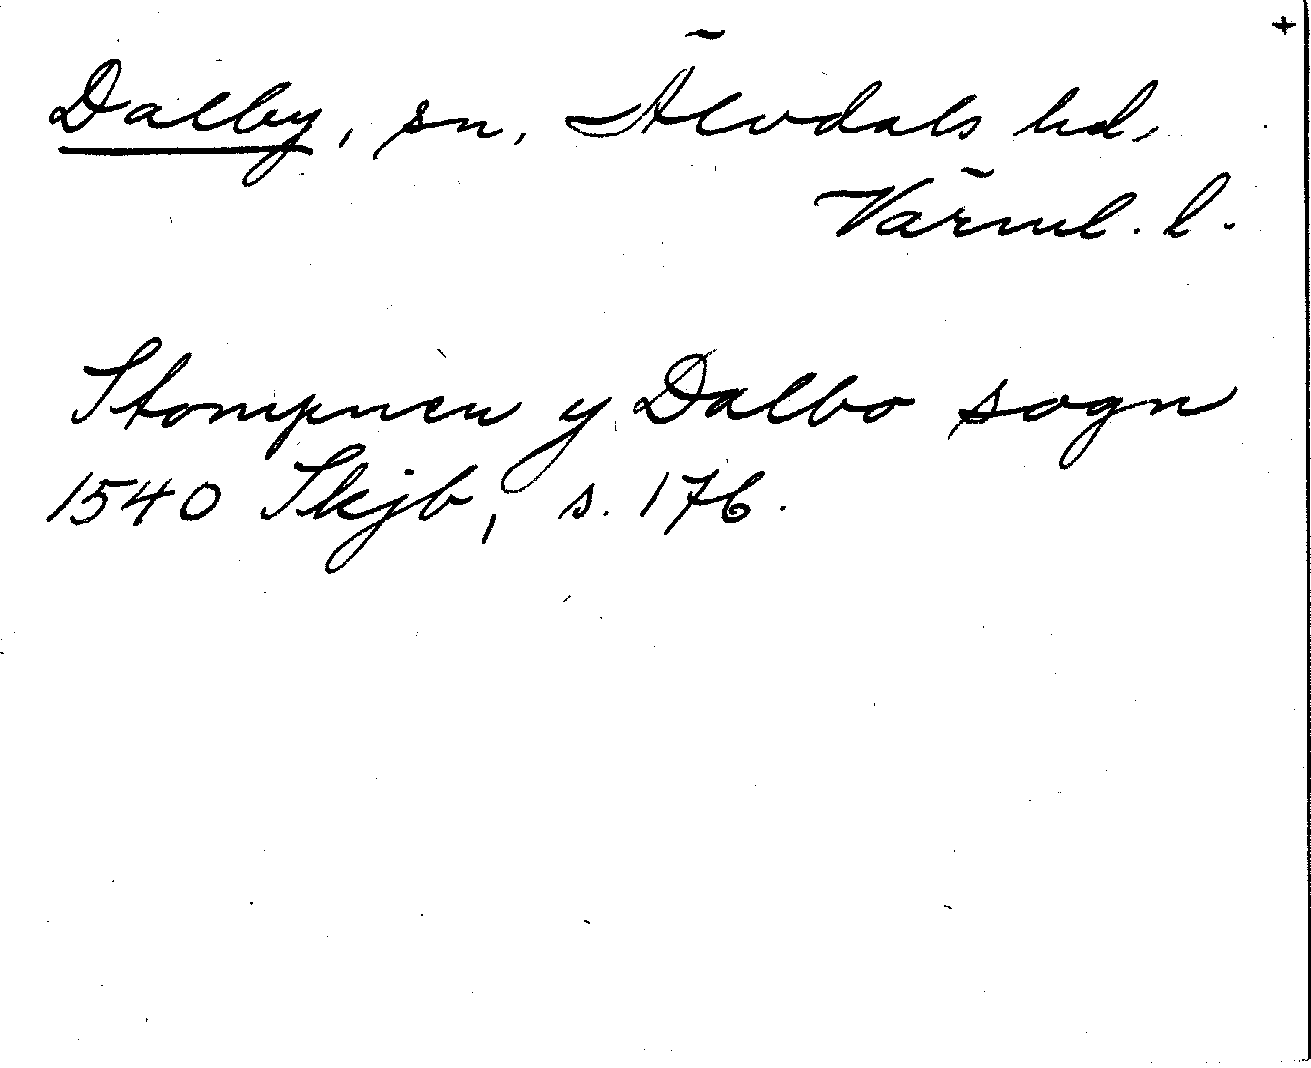 +
Dalby, sn, Älvdals hd,
Värml. l.
Stompnen y Dalbo sogn
1540 Skjb, s. 176.